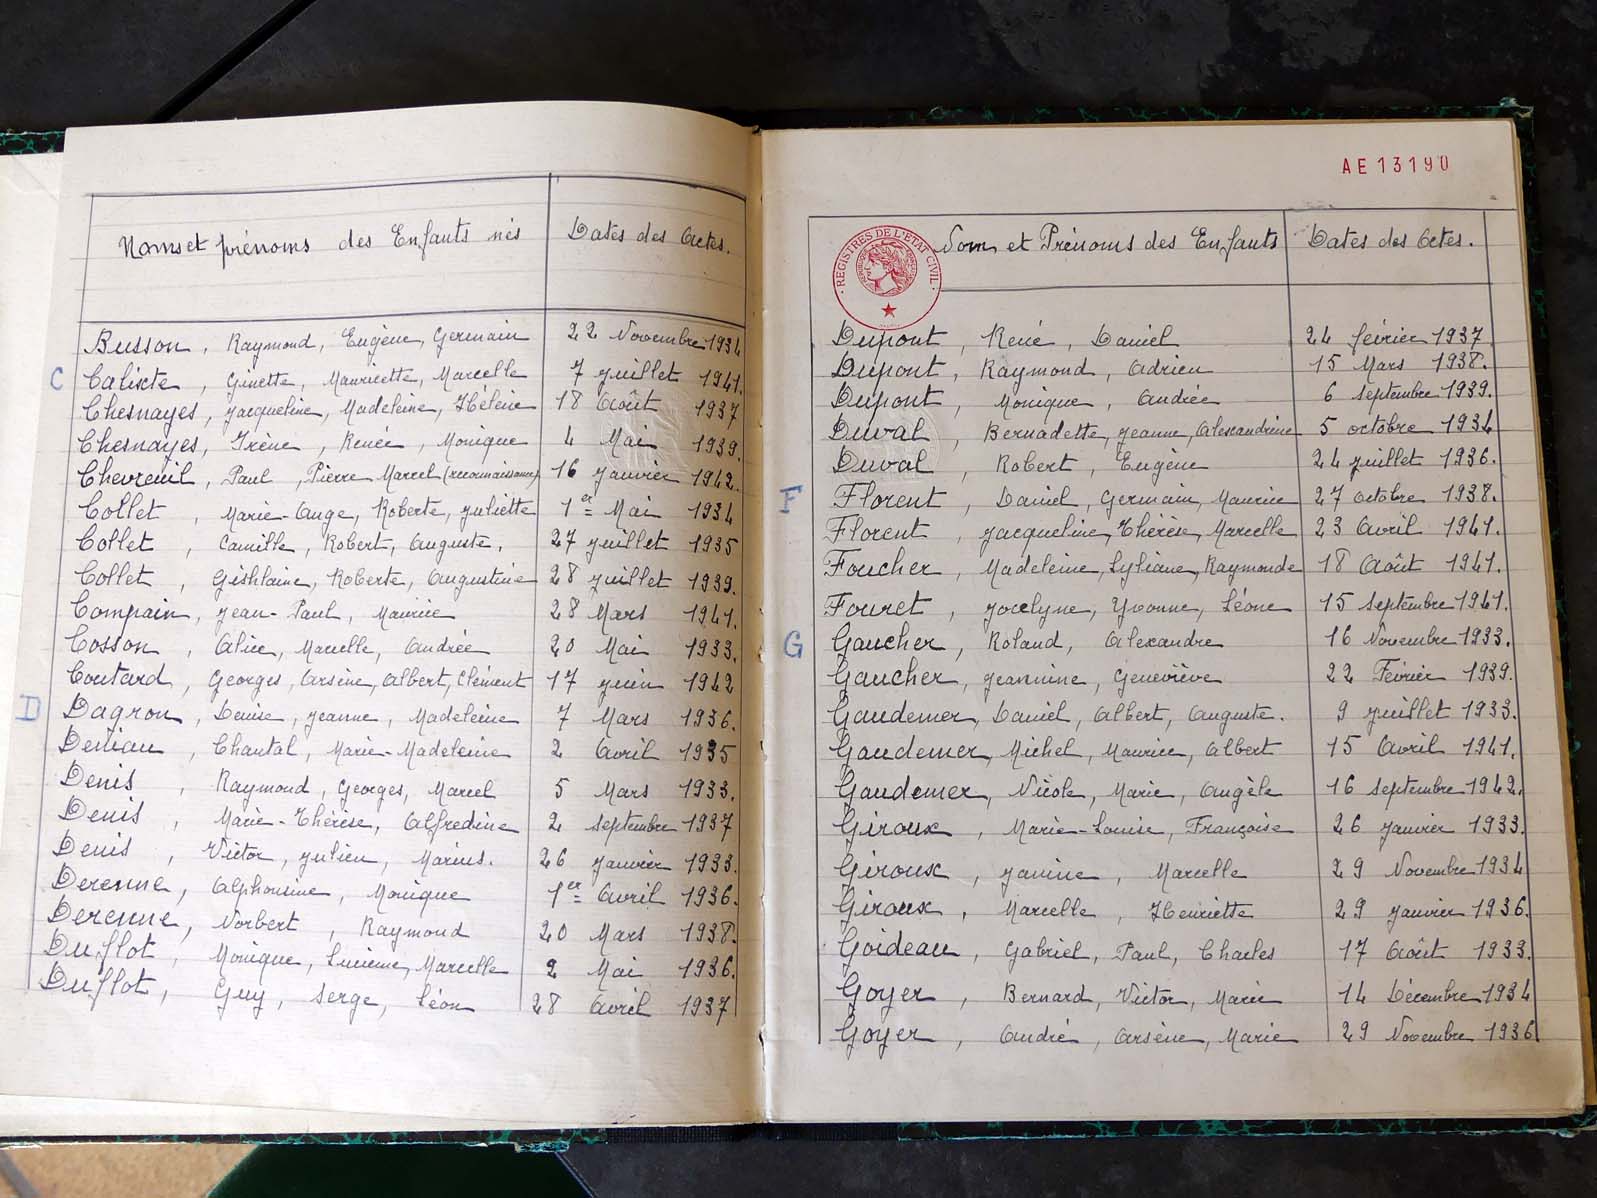 Noms et prénoms des Enfants nés Dates des Actes.
Busson, Raymond, Eugène, Germain 22 Novembre 1934
C Calixte, Ginette, Mauricette, Marcelle 7 Juillet 1941.
Chesnayes, Jacqueline, Madeleine, Hélène 18 Août 1937
Chesnayes, Irène, Renée, Monique 4 Mai 1939.
Chevreuil, Paul, Pierre Marcel (reconnaissance) 16 Janvier 1942.
Collet, Marie-Ange, Roberte, Juliette 1er Mai 1934
Collet, Camille, Robert, Auguste. 27 Juillet 1935
Collet, Gishlaine, Roberte, Augustine 28 Juillet 1939.
Compain, Jean-Paul, Maurice 28 Mars 1941.
Cosson, Alice, Marcelle, Andrée 20 Mai 1933.
Coutard, Georges, Arsène, Albert, Clément 17 Juin 1942
D Dagron, Denise, Jeanne, Madeleine 7 Mars 1936.
Deniau, Chantal, Marie-Madeleine 2 Avril 1935
Denis, Raymond, Georges, Marcel 5 Mars 1933.
Denis, Marie-Thérèse, Alfredine 2 Septembre 1937
Denis, Victor, Julien, Marius. 26 Janvier 1933.
Derenne, Alphonsine, Monique 1er Avril 1936.
Derenne, Norbert, Raymond 20 Mars 1938.
Duflot, Monique, Lucienne, Marcelle 2 Mai 1936.
Duflot, Guy, Serge, Léon 28 Avril 1937
AE 13190
REGISTRES DE L'ETAT CIVIL
Nom et Prénoms des Enfants Dates des Actes.
Dupont, René, Daniel 24 février 1937.
Dupont, Raymond, Adrien 15 Mars 1938.
Dupont, Monique, Andrée 6 Septembre 1939.
Duval, Bernadette, Jeanne, Alexandrine 5 octobre 1934
Duval, Robert, Eugène 24 Juillet 1936.
F Florent, Daniel, Germain, Maurice 27 Octobre 1938.
Florent, Jacqueline, Thérèse, Marcelle 23 Avril 1941.
Foucher, Madeleine, Lyliane, Raymonde 18 Août 1941.
Fouret, Jocelyne, Yvonne, Léone 15 Septembre 1941.
G Gaucher, Roland, Alexandre 16 Novembre 1933.
Gaucher, Jeannine, Geneviève 22 Février 1939.
Gaudemer, Daniel, Albert, Auguste. 9 Juillet 1933.
Gaudemer, Michel, Maurice, Albert 15 Avril 1941.
Gaudemer, Nicole, Marie, Angèle 16 Septembre 1942.
Giroux, Marie-Louise, Françoise 26 Janvier 1933.
Giroux, Janine, Marcelle 29 Novembre 1934
Giroux, Marcelle, Henriette 29 Janvier 1936.
Goideau, Gabriel, Paul, Charles 17 Août 1933.
Goyer, Bernard, Victor, Marie 14 Décembre 1934
Goyer, André, Arsène, Marie 29 Novembre 1936